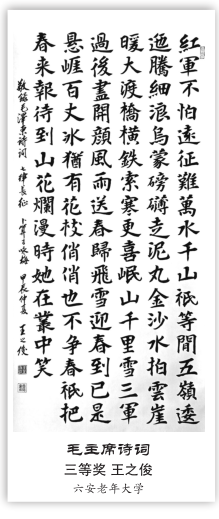 紅軍不怕遠征難萬水千山祇等閒五嶺逶
迤騰細浪烏蒙磅礴走泥丸金沙水拍雲崖
暖大渡橋橫鉄索寒更喜岷山千里雪三軍
過後盡開顏風雨送春歸飛雪迎春到已是
懸崖百丈冰猶有花枝俏俏也不争春祇把
春来報待到山花爛漫時她在叢中笑
敬録毛澤東诗词 七律長征 卜算子咏梅 甲辰仲夏 王之俊
毛主席诗词
三等奖 王之俊
六安老年大学